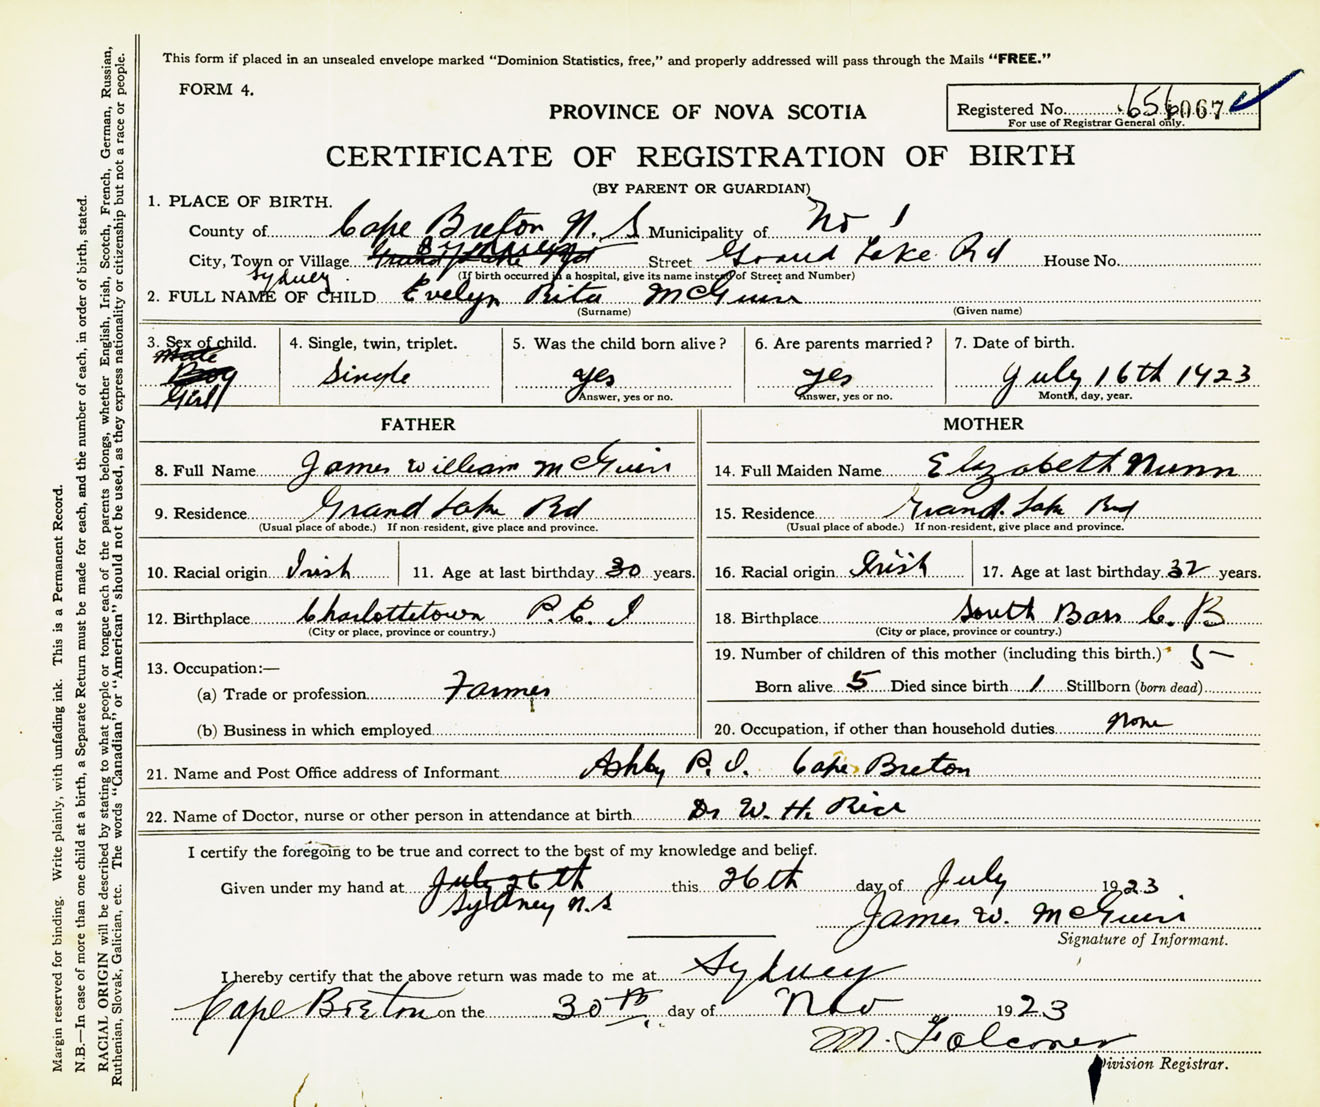 This form if placed in an unsealed envelope marked "Dominion Statistics, free," and properly addressed will pass through the Mails "FREE."
FORM 4.
PROVINCE OF NOVA SCOTIA
Registered No. 067
For use of Registrar General only.
CERTIFICATE OF REGISTRATION OF BIRTH
(BY PARENT OR GUARDIAN)
1. PLACE OF BIRTH.
County of Cape Breton N. S Municipality of No 1
City, Town or Village Street Grand Lake Rd House No.
Sydney (If birth occurred in a hospital, give its name instead of Street and Number)
2. FULL NAME OF CHILD Evelyn Rita McGuire
(Surname) (Given name)
3. Sex of child. Male Boy Girl
4. Single, twin, triplet. Single
5. Was the child born alive? yes Answer, yes or no.
6. Are parents married? yes Answer, yes or no.
7. Date of birth. July 16th 1923 Month, day, year.
FATHER
8. Full Name James William McGuire
9. Residence Grand Lake Rd
(Usual place of abode.) If non-resident, give place and province.
10. Racial origin Irish 11. Age at last birthday 30 years.
12. Birthplace Charlottetown P. E. I
(City or place, province or country.)
13. Occupation:—
(a) Trade or profession Farmer
(b) Business in which employed
MOTHER
14. Full Maiden Name Elizabeth Nunn
15. Residence Grand. Lake Rd
(Usual place of abode.) If non-resident, give place and province.
16. Racial origin Irish 17. Age at last birthday 32 years.
18. Birthplace South Bar C. B
(City or place, province or country.)
19. Number of children of this mother (including this birth.) 5
Born alive 5 Died since birth 1 Stillborn (born dead)
20. Occupation, if other than household duties none
21. Name and Post Office address of Informant Ashby P. O. Cape Breton
22. Name of Doctor, nurse or other person in attendance at birth Dr W. H. Rice
I certify the foregoing to be true and correct to the best of my knowledge and belief.
Given under my hand at July 26th this 26th day of July 1923
Sydney N.S
James W. McGuire
Signature of Informant.
I hereby certify that the above return was made to me at Sydney
Cape Breton on the 30th day of Nov 1923
M. Falconer
Division Registrar.
Margin reserved for binding. Write plainly, with unfading ink. This is a Permanent Record.
N.B.—In case of more than one child at a birth, a Separate Return must be made for each, and the number of each, in order of birth, stated.
RACIAL ORIGIN will be described by stating to what people or tongue each of the parents belongs, whether English, Irish, Scotch, French, German, Russian,
Ruthenian, Slovak, Galician, etc. The words "Canadian" or "American" should not be used, as they express nationality or citizenship but not a race or people.